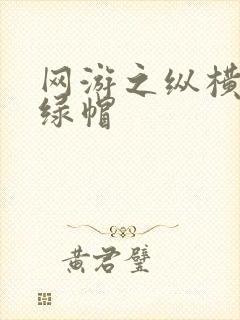 网游之纵横
绿帽
黄君璧